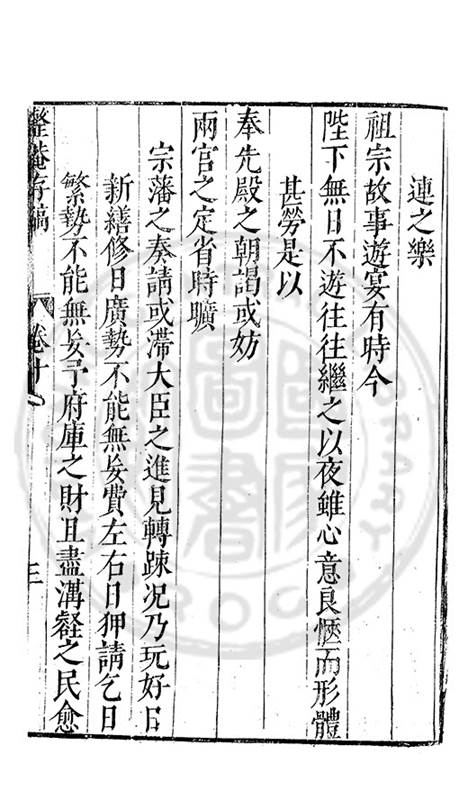 連之樂
祖宗故事遊宴有時今
陛下無日不遊往往繼之以夜雖心意良愜而形體
甚勞是以
奉先殿之朝謁或妨
兩宮之定省時曠
宗藩之奏請或滯大臣之進見轉踈况乃玩好日
新繕修日廣勢不能無妄費左右日狎請乞日
繁勢不能無妄予府庫之財且盡溝壑之民愈
整菴存稿 卷十 三